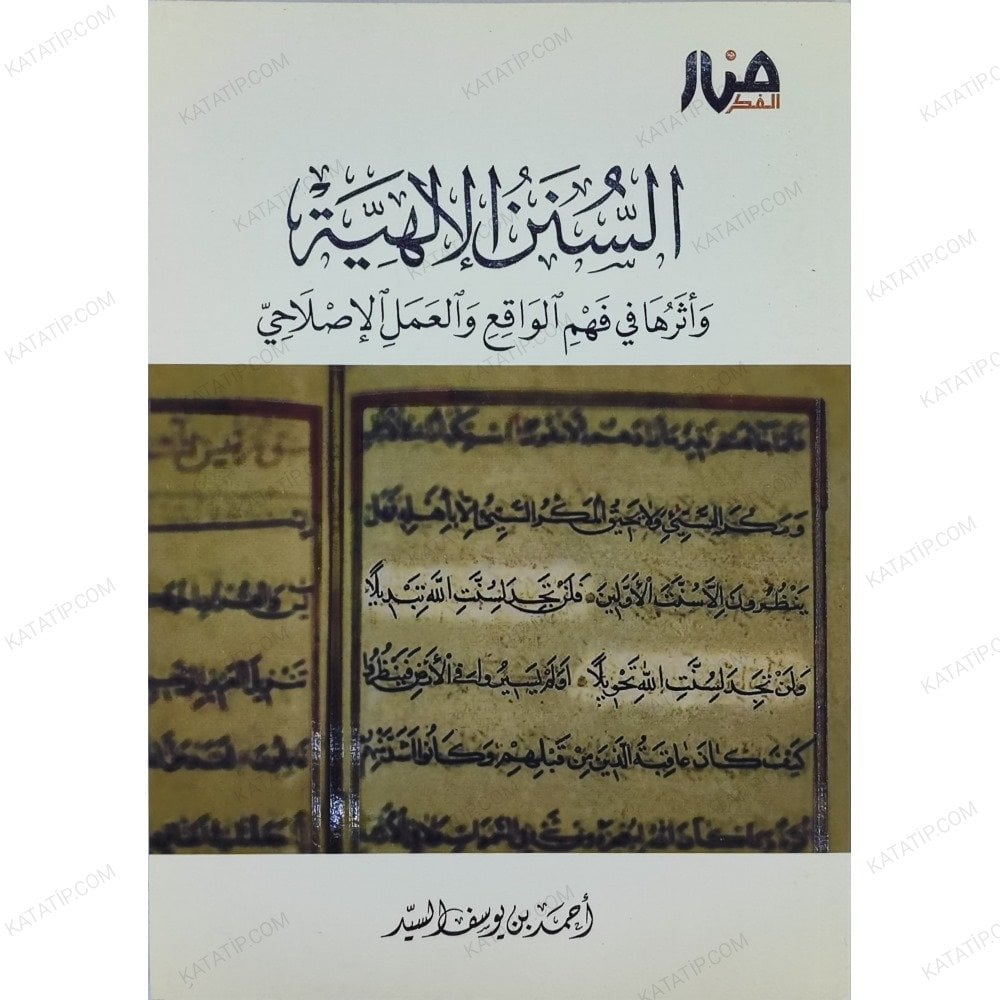 منار
الفكر
السُّنَنُ الإِلَهِيَّة
وَأَثَرُهَا فِي فَهْمِ ٱلوَاقِعِ وَٱلعَمَلِ ٱلإِصْلَاحِيّ
وَمَكْرَ السَّيِّئِ وَلَا يَحِيقُ الْمَكْرُ السَّيِّئُ إِلَّا بِأَهْلِهِ فَهَلْ
يَنْظُرُونَ إِلَّا سُنَّتَ الْأَوَّلِينَ فَلَنْ تَجِدَ لِسُنَّتِ اللَّهِ تَبْدِيلًا
وَلَنْ تَجِدَ لِسُنَّتِ اللَّهِ تَحْوِيلًا أَوَلَمْ يَسِيرُوا فِي الْأَرْضِ فَيَنْظُرُوا
كَيْفَ كَانَ عَاقِبَةُ الَّذِينَ مِنْ قَبْلِهِمْ وَكَانُوا أَشَدَّ مِنْهُمْ
أحمد بن يوسف السيد
KATATİP.COM